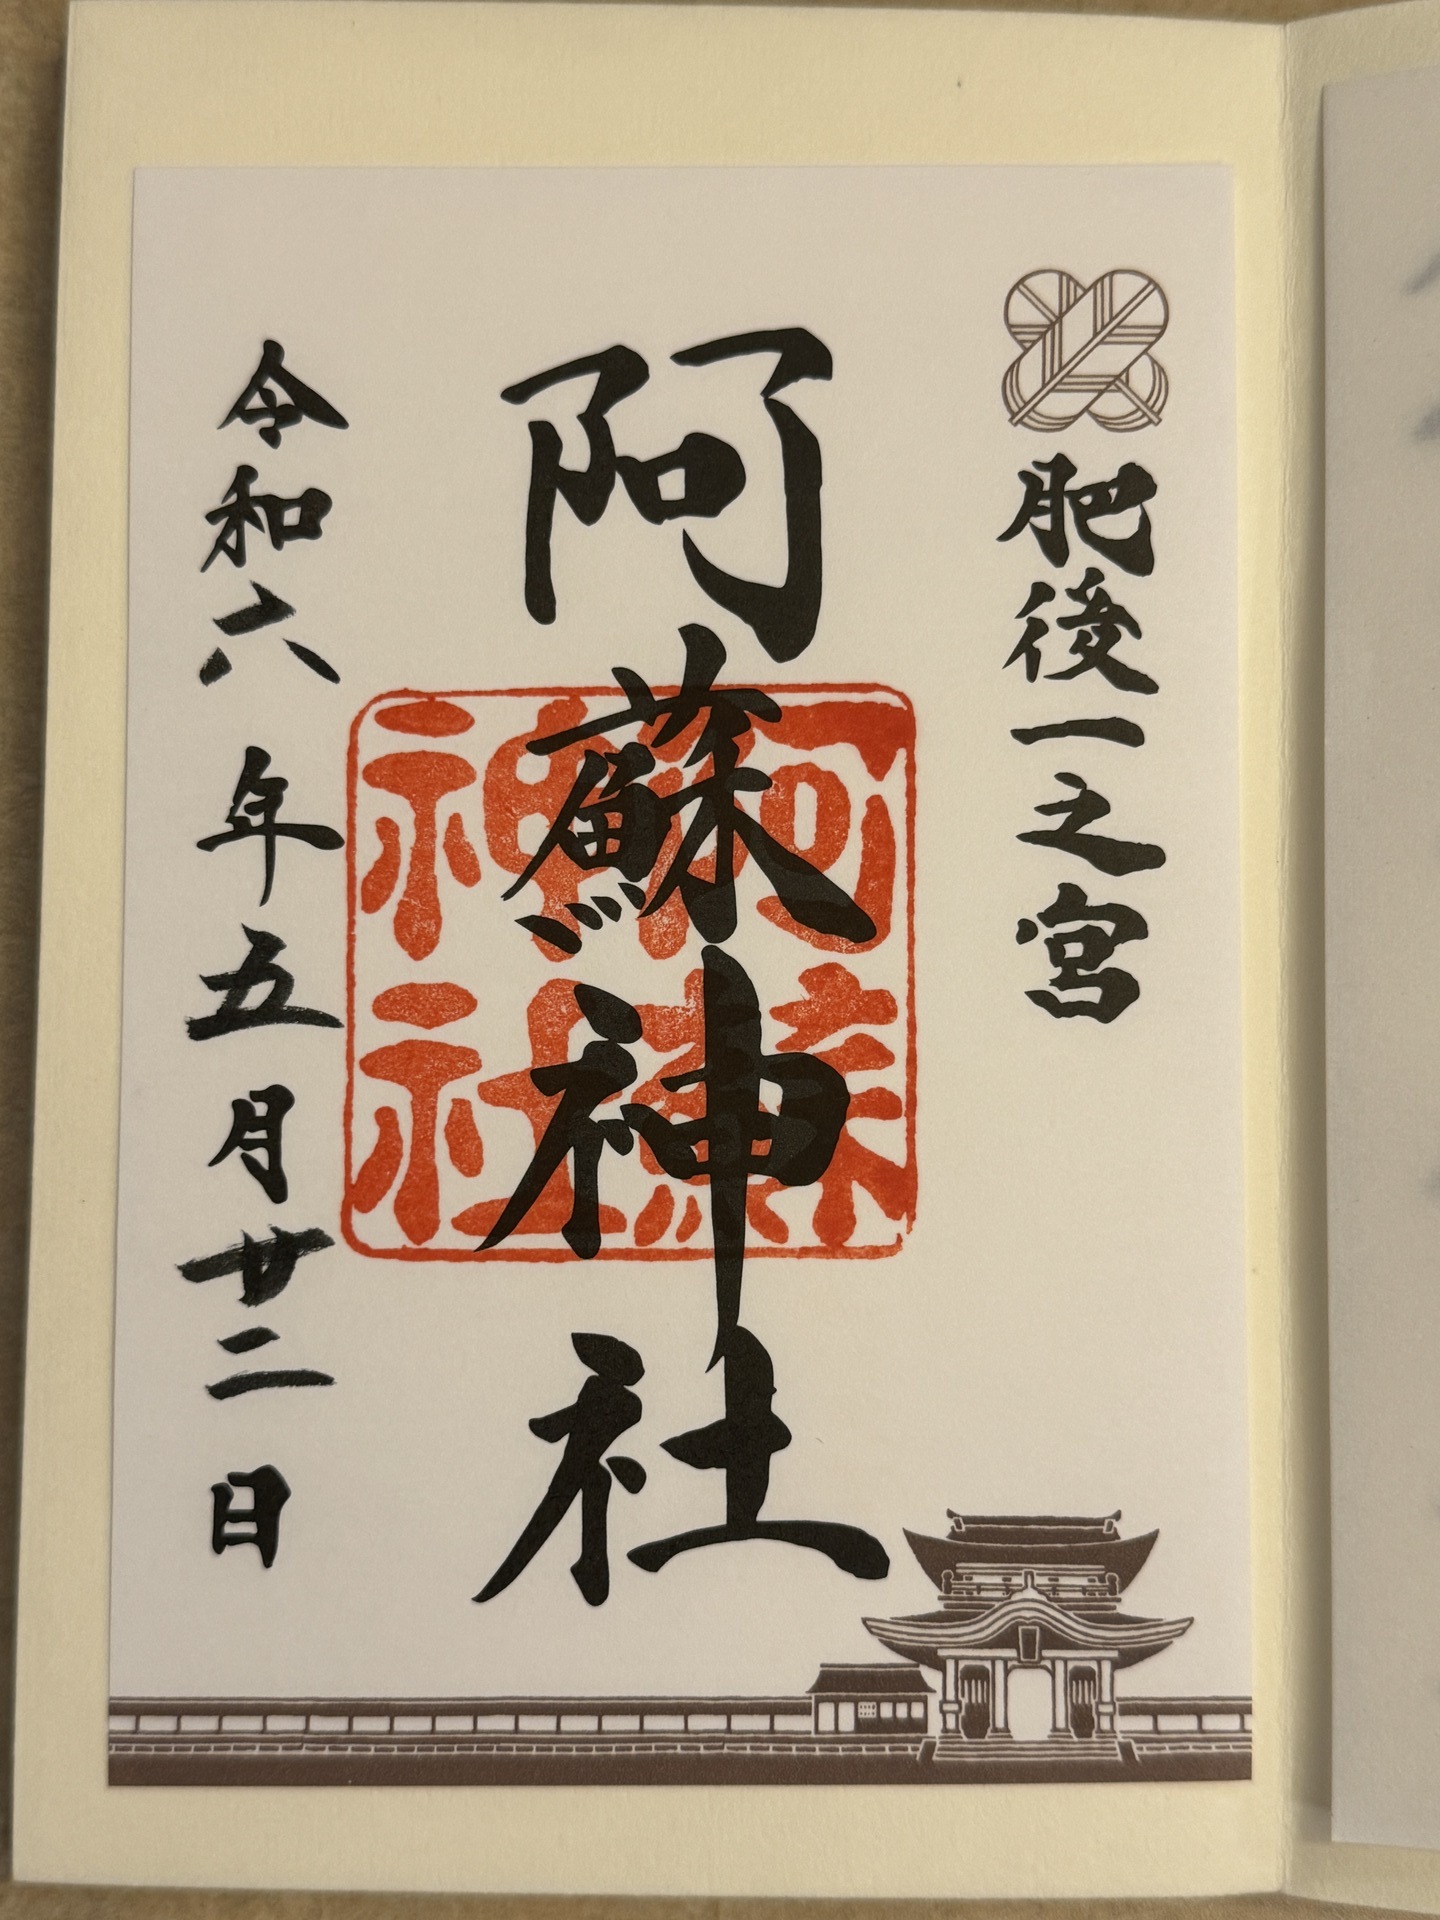 肥後一之宮
阿蘇神社
阿蘇神社
令和六年五月廿二日